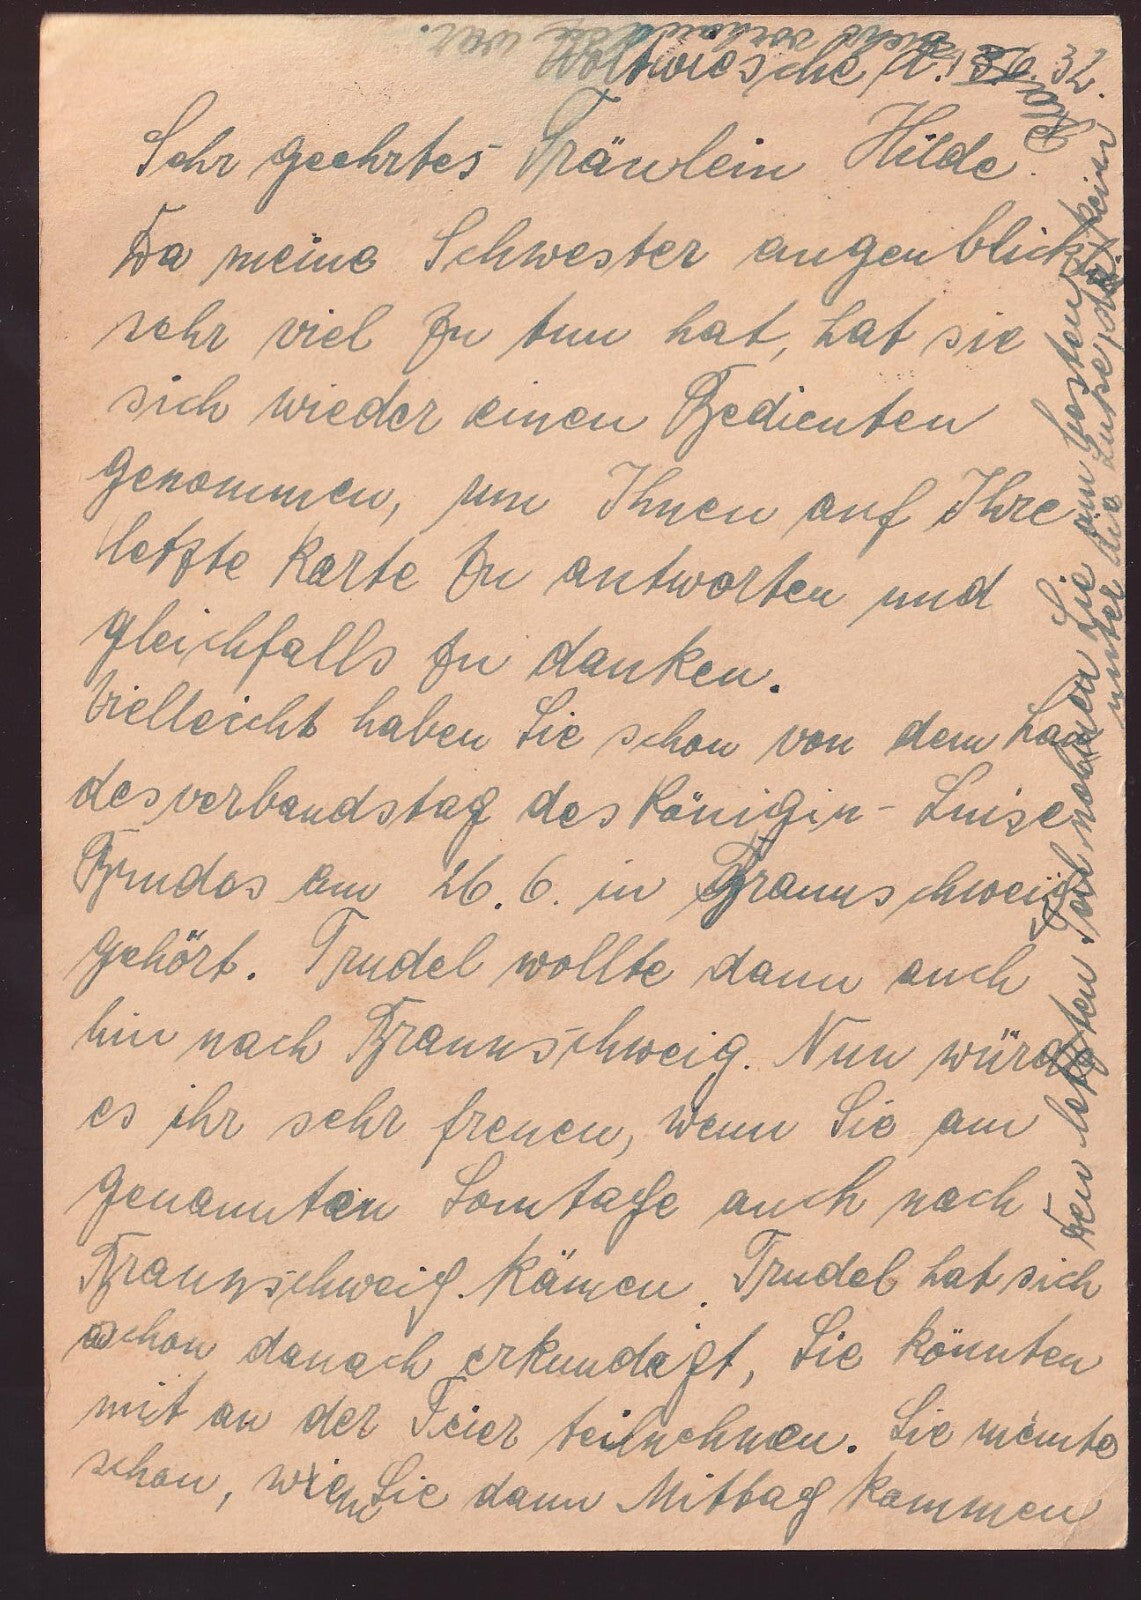 Woltwiesche d. 32.
Sehr geehrtes Fräulein Hilde.
Da meine Schwester augenblickl.
sehr viel zu tun hat, hat sie
sich wieder einen Bedienten
genommen, um Ihnen auf Ihre
letzte Karte zu antworten und
gleichfalls zu danken.
Vielleicht haben Sie schon von dem Lan
desverbandstag des Königin-Luise
Bundes am 26. 6. in Braunschweig
gehört. Trudel wollte dann auch
hin nach Braunschweig. Nun würde
es ihr sehr freuen, wenn Sie am
genannten Sonntage auch nach
Braunschweig kämen. Trudel hat sich
schon danach erkundigt, Sie könnten
mit an der Feier teilnehmen. Sie meinte
schon, wenn Sie dann Mittag kommen
Den letzten Teil nehmen Sie am besten
unter die Lupe, da kein
Platz
mehr vorhanden war.